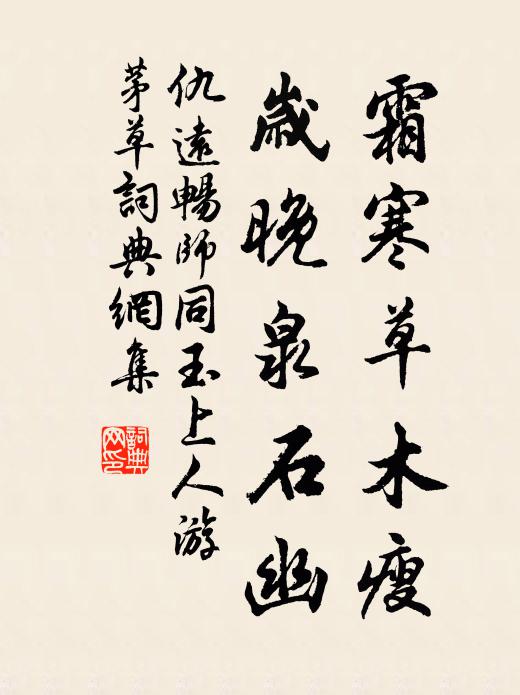 霜寒草木瘦
歲晚泉石幽
仇遠暢師同玉上人游
茅草詞典網集
詞典
网印